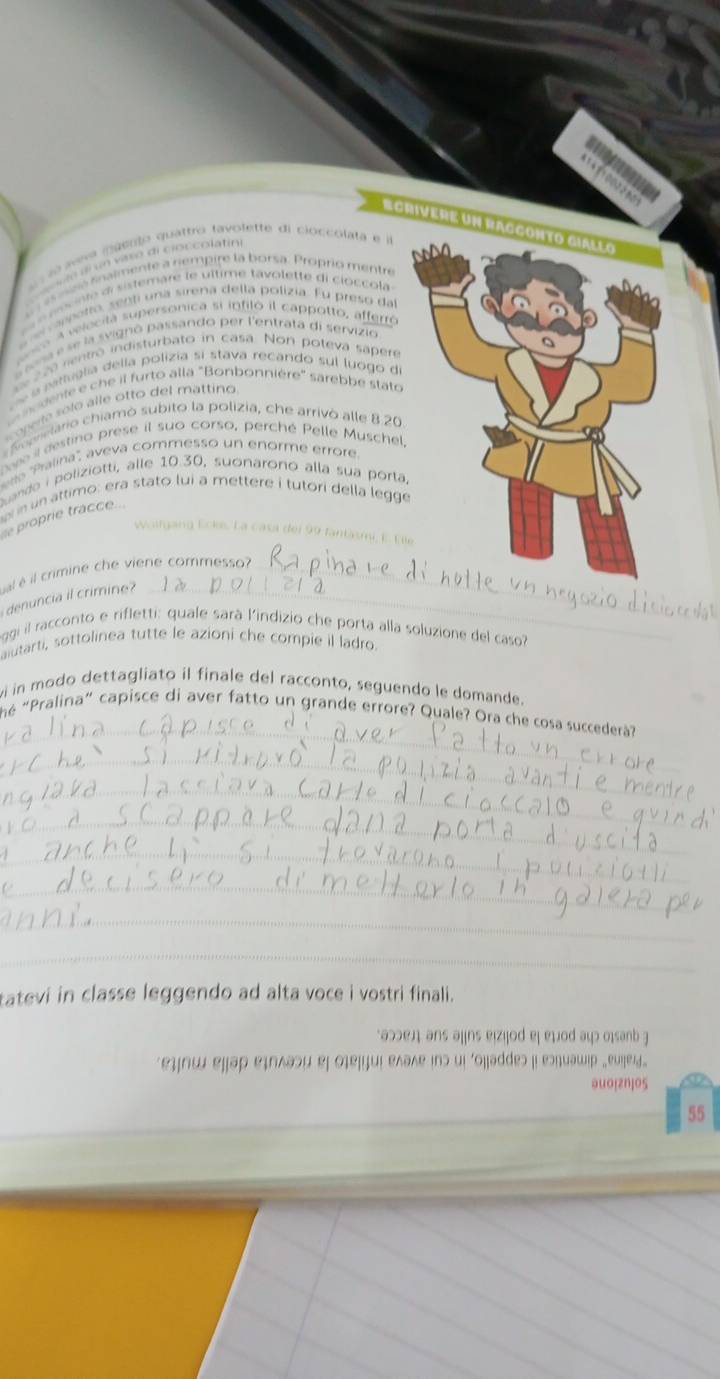 SCRIVERE UN RACCONTO GIALLO
quattro tavolette di cioccolata e il
di un vaso di cioccolatini
finalmente a riempire la borsa. Proprio mentre
di sistemare le ultime tavolette di cioccola-
cappotto, sentì una sirena della polizia. Fu preso dal
A velocità supersonica si infilò il cappotto, afferrò
e se la svignò passando per l'entrata di servizio.
2.20 rientrò indisturbato in casa. Non poteva sapere
la pattuglia della polizia si stava recando sul luogo di
incidente e che il furto alla "Bonbonnière" sarebbe stato
scoperto solo alle otto del mattino.
proprietario chiamò subito la polizia, che arrivò alle 8.20.
Dopo il destino prese il suo corso, perché Pelle Muschel,
"Pralina", aveva commesso un enorme errore.
Quando i poliziotti, alle 10.30, suonarono alla sua porta,
in un attimo: era stato lui a mettere i tutori della legge
proprie tracce...
Wolfgang Ecke, La casa dei 99 fantasmi, E. Elle
ual è il crimine che viene commesso? Rapinare di notte un negozio di
denuncia il crimine? la polizia
ggi il racconto e rifletti: quale sarà l'indizio che porta alla soluzione del caso?
aiutarti, sottolinea tutte le azioni che compie il ladro.
vi in modo dettagliato il finale del racconto, seguendo le domande.
hé "Pralina" capisce di aver fatto un grande errore? Quale? Ora che cosa succederà?
ralina capisce di aver fatto un errore
rche' si ritrovò la polizia avanti e mentre
ngiava lasciava carte di cioccalo e quindi
a scappare dalla porta d'uscita
anche lì si trovarono i poliziotti
e decisero di metterlo in galera per
anni.
tatevi in classe leggendo ad alta voce i vostri finali.
Soluzione
"Pralina" dimentica il cappello, in cui aveva infilato la ricevuta della multa.
E questo che porta la polizia sulle sue tracce.
55